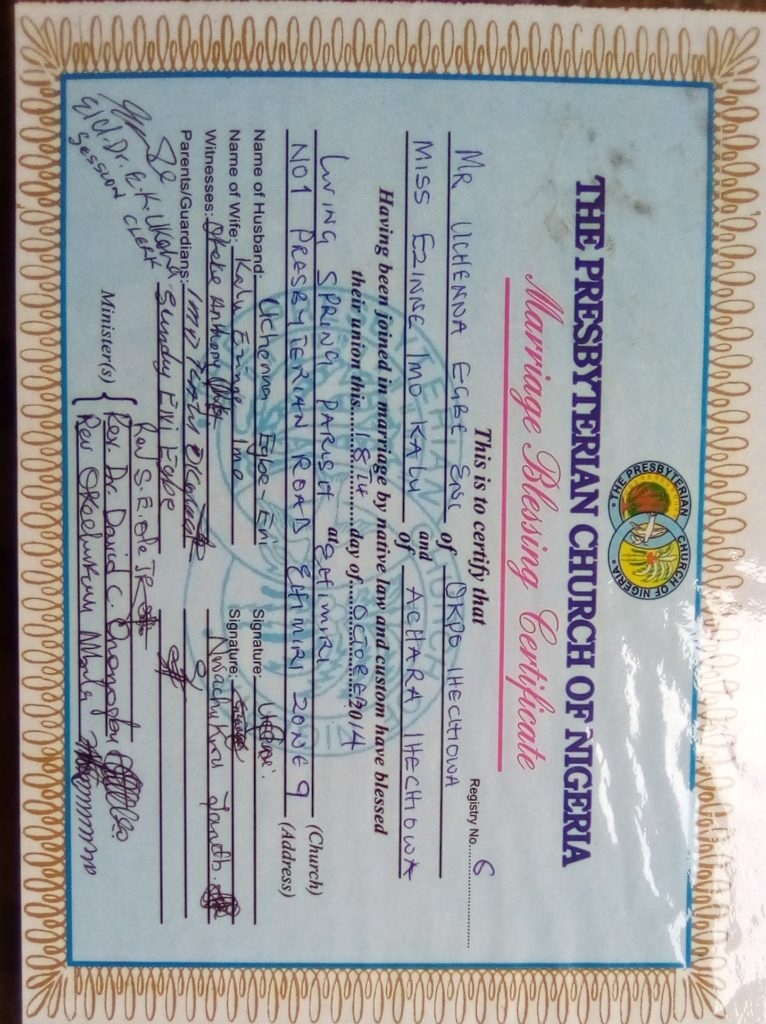 THE PRESBYTERIAN CHURCH OF NIGERIA
THE PRESBYTERIAN CHURCH OF NIGERIA
Marriage Blessing Certificate
Registry No. 6
This is to certify that
MR UCHENNA EGBE ENI of OKPO IHECHIOWA
and
MISS EZINNE IMO KALU of ACHARA IHECHIOWA
Having been joined in marriage by native law and custom have blessed
their union this 18th day of OCTOBER 2014
LIVING SPRING PARISH at EHIMIRI (Church)
NO1 PRESBYTERIAN ROAD EHIMIRI ZONE 9 (Address)
Name of Husband: Uchenna Egbe-Eni Signature:
Name of Wife: Kalu Ezinne Imo Signature:
Witnesses: Okeke Anthony Nwachukwu
Parents/Guardians: Imo
Sunday Eni Egbe
Rev S.E.
Minister(s) Rev. Dr. David C.
Rev Okechukwu
Eld. Dr. E.K.
Session Clerk